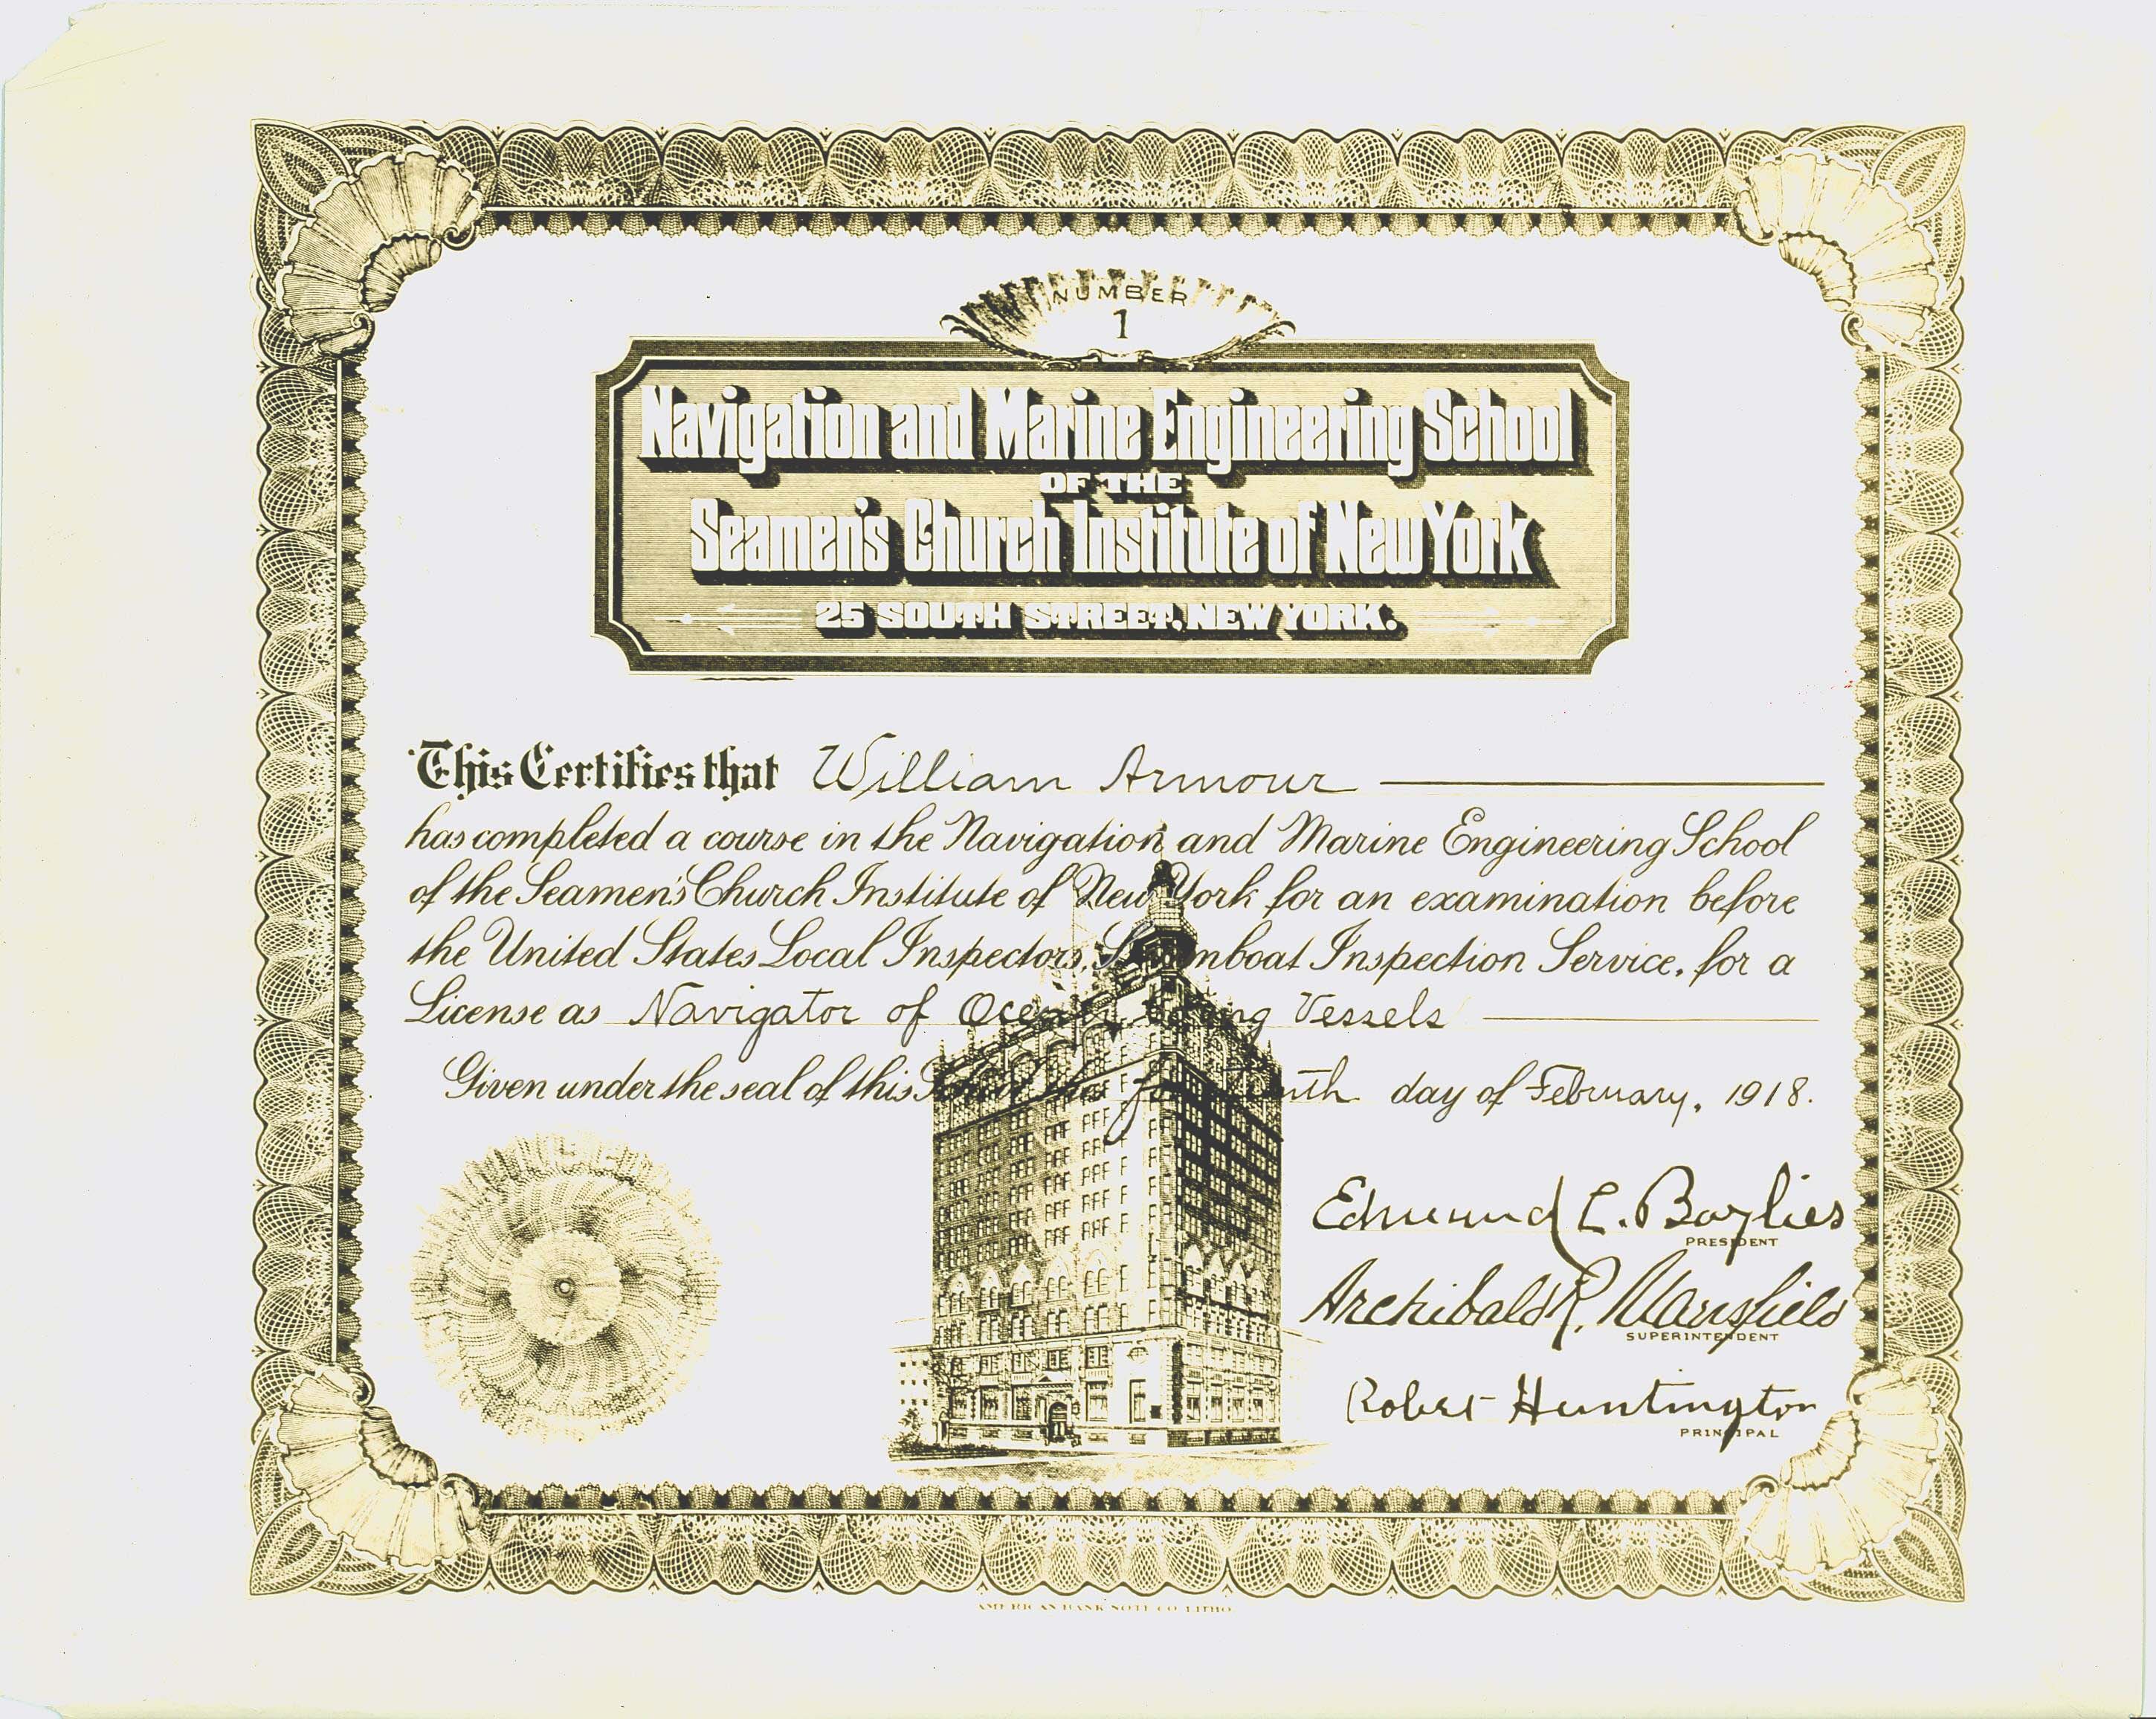 NUMBER
1
Navigation and Marine Engineering School
OF THE
Seamen's Church Institute of New York
25 SOUTH STREET, NEW YORK.
This Certifies that William Armour
has completed a course in the Navigation and Marine Engineering School
of the Seamen's Church Institute of New York for an examination before
the United States Local Inspectors, Steamboat Inspection Service, for a
License as Navigator of Ocean Going Vessels
Given under the seal of this School this day of February, 1918.
Edmund L. Baylies
PRESIDENT
Archibald R. Mansfield
SUPERINTENDENT
Robert Huntington
PRINCIPAL
AMERICAN BANK NOTE CO. LITHO